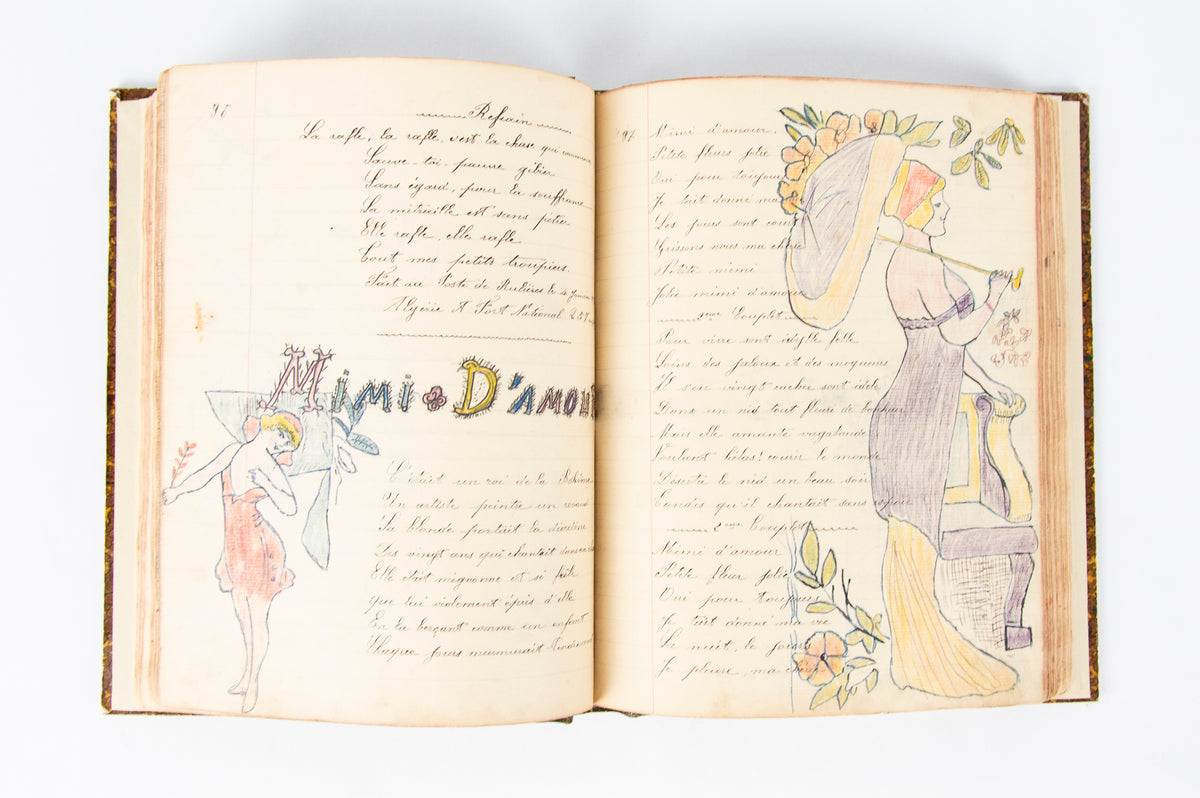 96
Refrain
La rafle, la rafle, c'est la chase qui commence
Sauve-toi pauvre gibier
Sans égard, pour la souffrance
La mitraille est sans pitier
Elle rafle, elle rafle
Tout mes petits troupiers.
Fait au Poste de Rulières le
Algérie Fort National
MIMI D'AMOUR
C'était un roi de la Bohème
Un artiste peintre un
Sa blonde portait la diadème
Des vingt ans qui chantait dans
Elle était mignonne et si frêle
que lui violement épris d'elle
En la berçant comme un enfant
Chaque jours murmurait
97
Mimi d'amour,
Petite fleurs jolie
Oui pour toujours
Je tait donné ma
Les jours sont court
Grissons nous ma chérie
Petite mimi
Jolie mimi d'amour
2eme Couplet
Pour vivre sont idylle folle
Loins des jaloux et des moqueurs
Il s'en vingt cacher sont idole
Dans un nid tout fleuri de bonheur
Mais elle amante vagabonde
Voulant hélas! courir le monde
Deserta le nid un beau soir
Tandis qu'il chantait sans espoir
2eme Couplet
Mimi d'amour
Petite fleur jolie
Oui pour toujours
Je tait donné ma vie
La nuit, le jours
Je pleure, ma